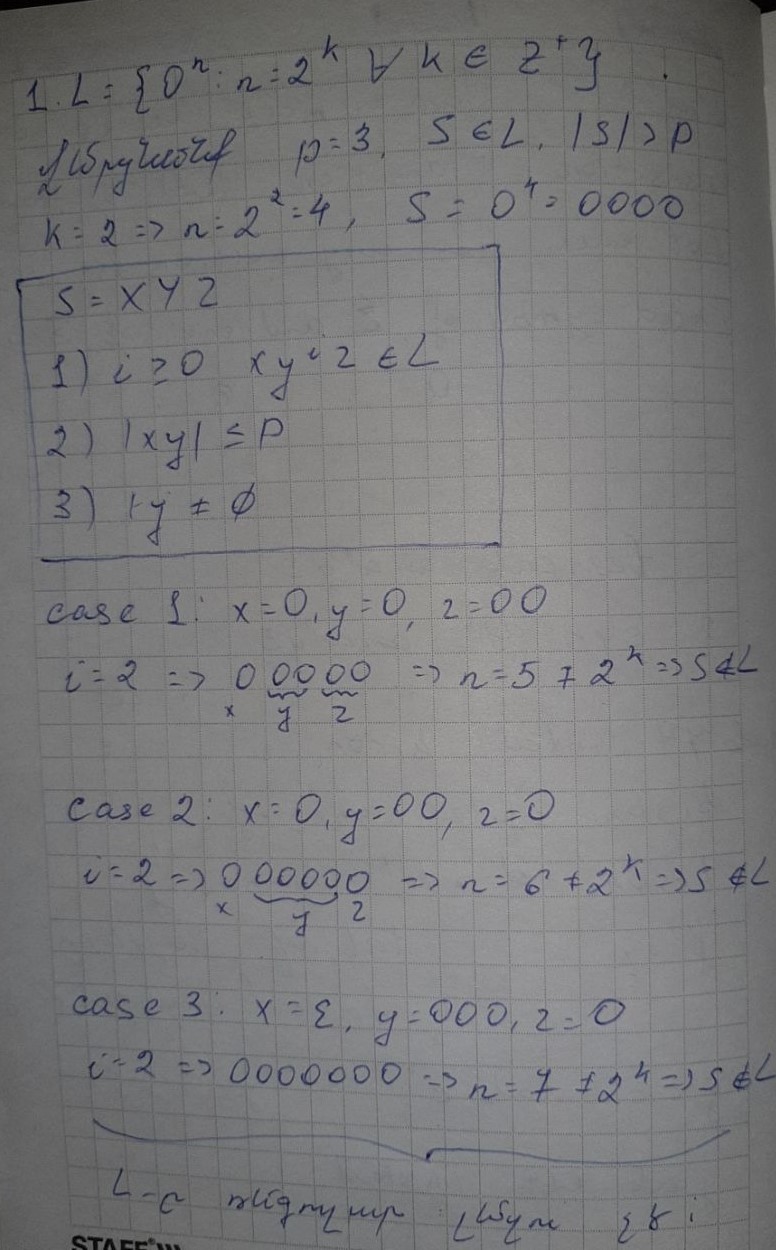 1. L = {0ⁿ : n = 2ᵏ ∀ k ∈ Z⁺} .
p = 3, S ∈ L, |S| > p
k = 2 => n = 2² = 4, S = 0⁴ = 0000
S = XYZ
1) i ≥ 0 xyⁱz ∈ L
2) |xy| ≤ P
3) y ≠ ∅
case 1: x = 0, y = 0, z = 00
i = 2 => 0 00 00 => n = 5 ≠ 2ᵏ => S ∉ L
x y z
case 2: x = 0, y = 00, z = 0
i = 2 => 0 0000 0 => n = 6 ≠ 2ᵏ => S ∉ L
x y z
case 3: x = ε, y = 000, z = 0
i = 2 => 0000000 => n = 7 ≠ 2ᵏ => S ∉ L
L-ը ռեգուլյար լեզու չէ:
STAFF